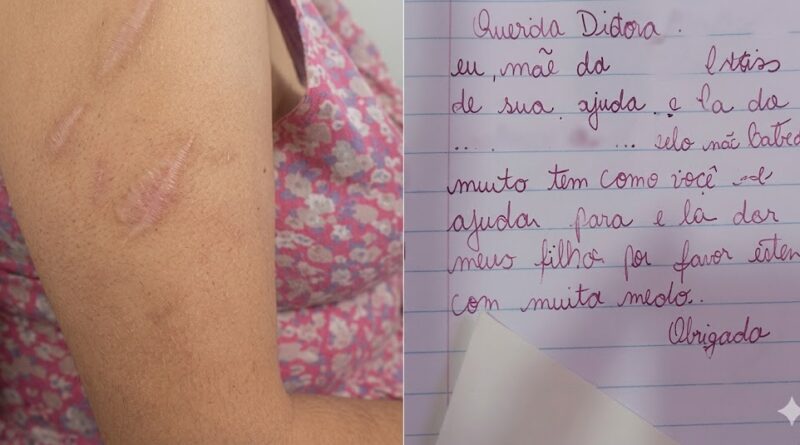 Querida Ditora.
eu, mãe da
de sua ajuda e la da
.... ... selo não
muito tem como você
ajudar para e la dar
meus filhos por favor
com muita medo..
Obrigada